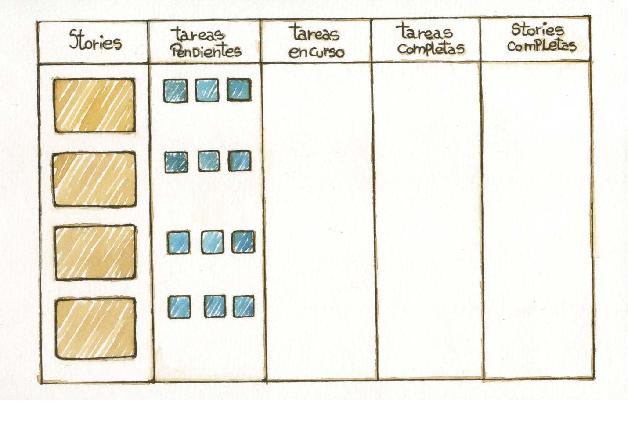 Stories
tareas
Pendientes
tareas
en curso
tareas
completas
Stories
comPletas